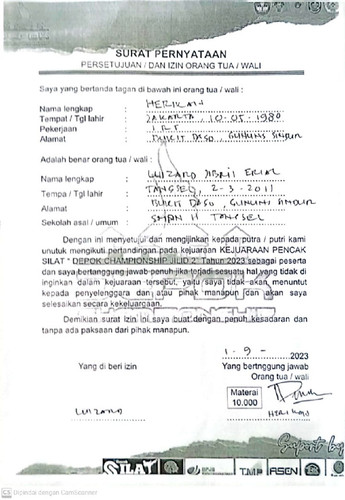 SURAT PERNYATAAN
PERSETUJUAN / DAN IZIN ORANG TUA / WALI
Saya yang bertanda tagan di bawah ini orang tua / wali :
Nama lengkap :
Tempat / Tgl lahir : JAKARTA, 10-05-1980
Pekerjaan : IRT
Alamat : BUKIT DAGO, GUNUNG SINDUR
Adalah benar orang tua / wali :
Nama lengkap :
Tempa / Tgl lahir : TANGSEL, 2-3-2011
Alamat : BUKIT DAGO, GUNUNG SINDUR
Sekolah asal / umum : SMPN 11 TANGSEL
Dengan ini menyetujui dan mengijinkan kepada putra / putri kami
unutuk mengikuti pertandingan pada kejuaraan KEJUARAAN PENCAK
SILAT " DEPOK CHAMPIONSHIP JILID 2" Tahun 2023 sebagai peserta
dan saya bertanggung jawab penuh jika terjadi sesuatu hal yang tidak di
inginkan dalam kejuaraan tersebut, yaitu saya tidak akan menuntut
kepada penyelenggara dan atau pihak manapun dan akan saya
selesaikan secara kekeluargaan.
Demikian surat izin ini saya buat dengan penuh kesadaran dan
tanpa ada paksaan dari pihak manapun.
1-9- 2023
Yang di beri izin
Yang bertnggung jawab
Orang tua / wali
Materai
10.000
Suport by
SILAT
TMP
ASEN
CS Dipindai dengan CamScanner